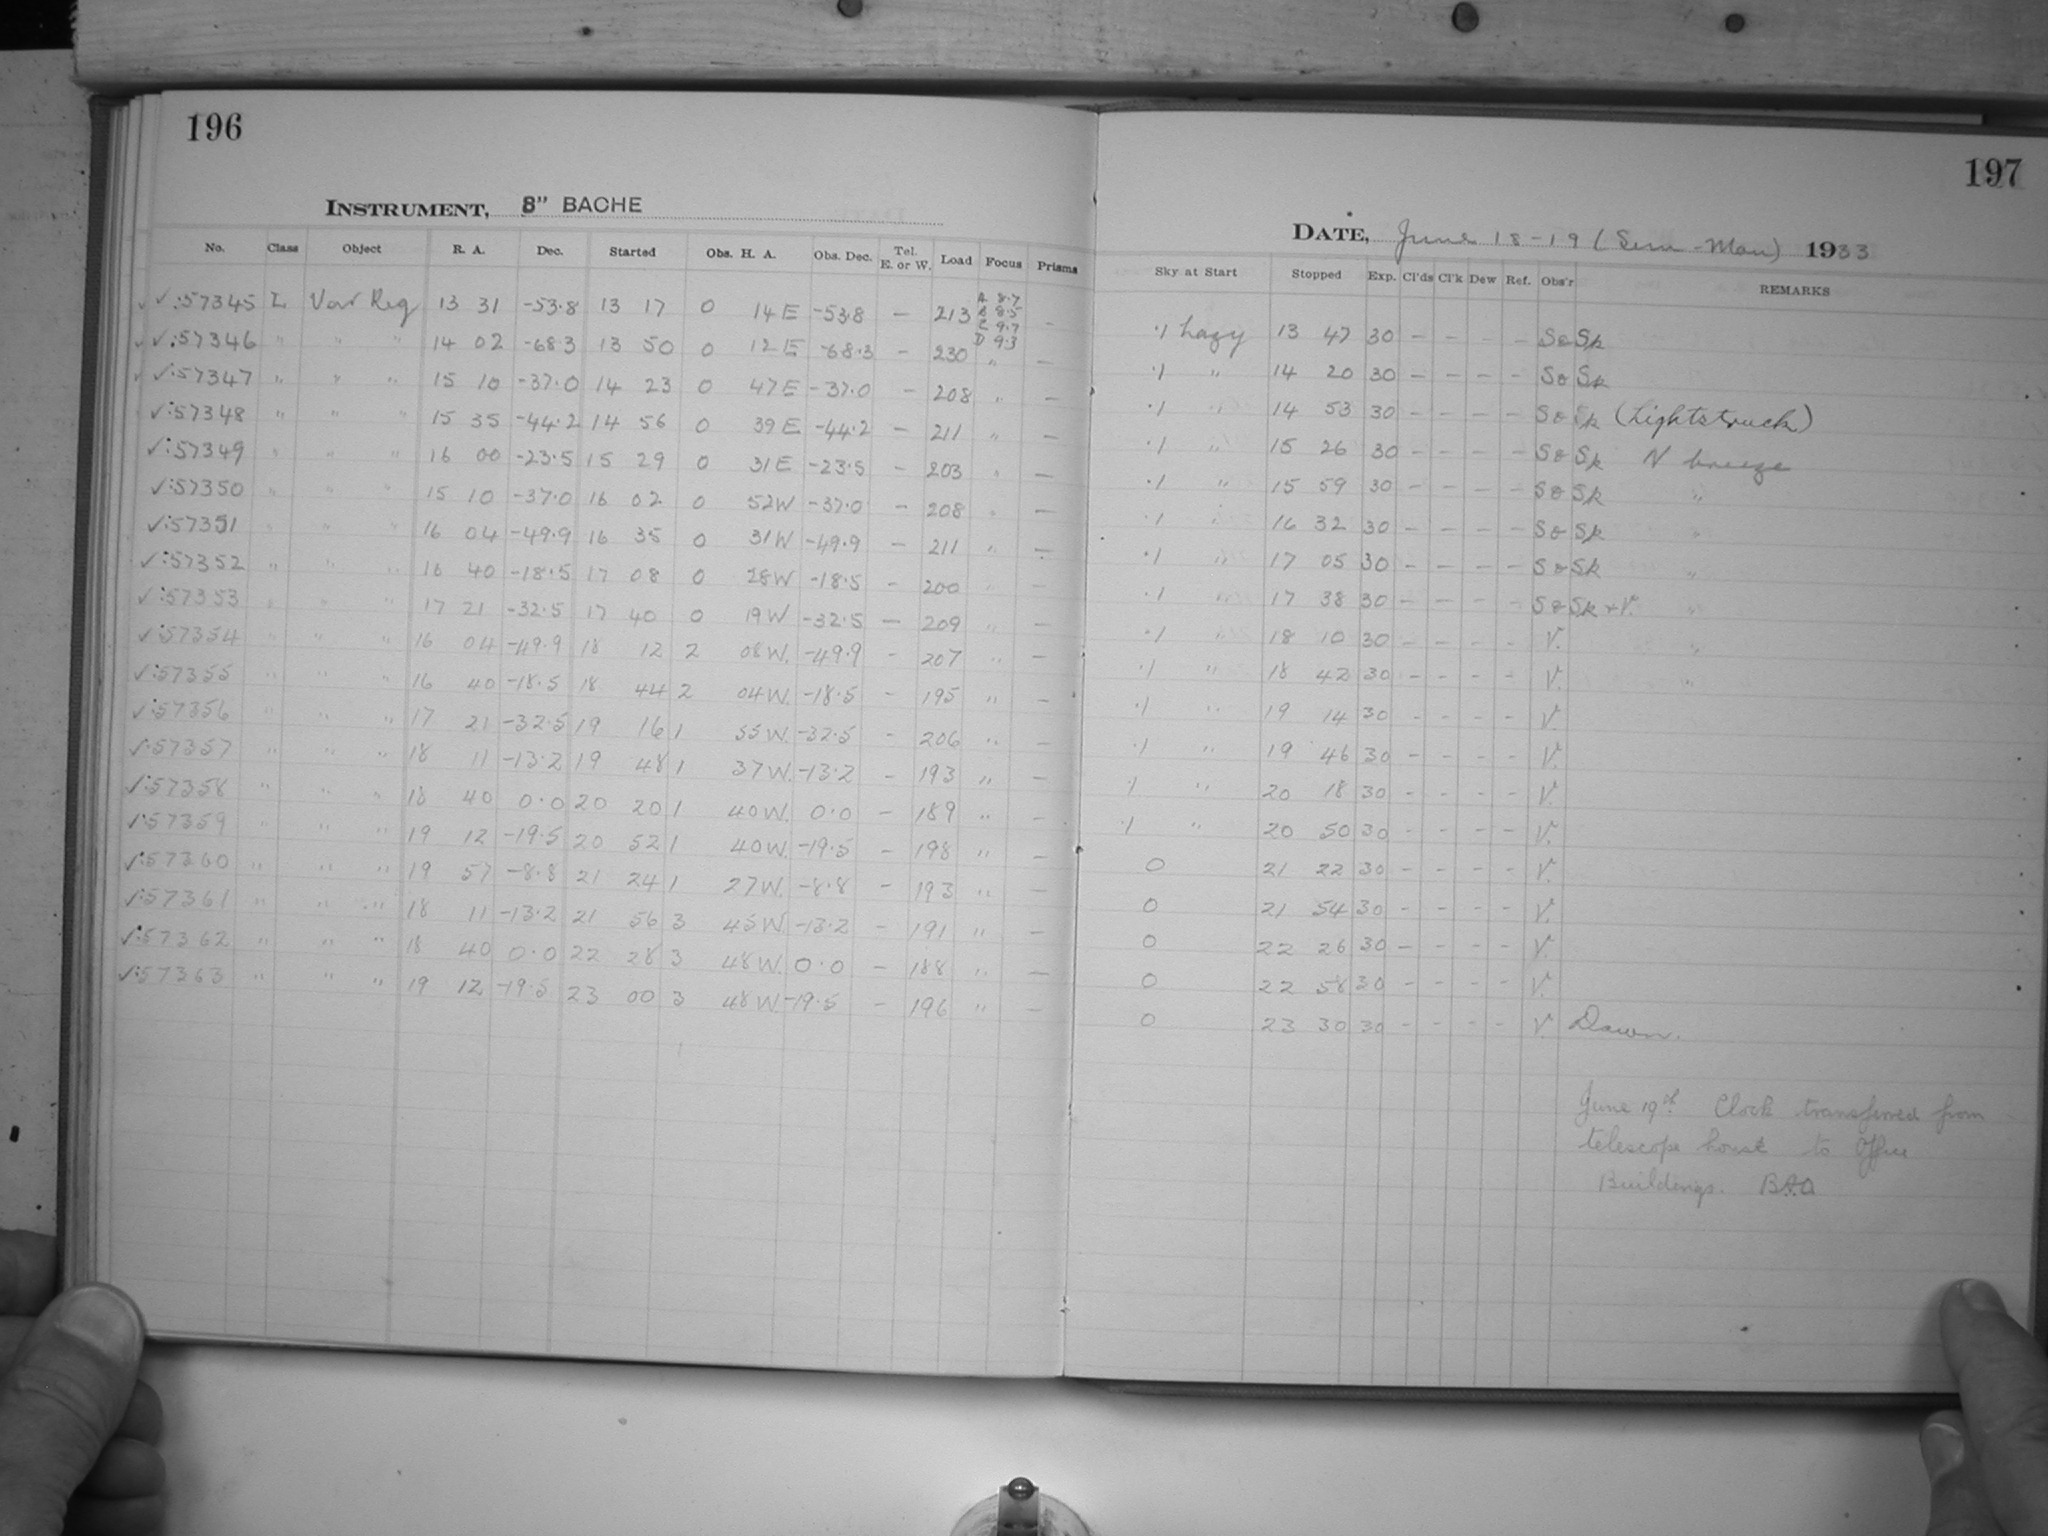 196
INSTRUMENT, 8" BACHE
No. Class Object R. A. Dec. Started Obs. H. A. Obs. Dec. Tel. E. or W. Load Focus Prisms
✓:57345 L Var Reg 13 31 -53.8 13 17 0 14 E -53.8 - 213 A 8.7 B 8.5 C 9.7 D 9.3 -
✓:57346 " " " 14 02 -68.3 13 50 0 12 E -68.3 - 230 " -
✓:57347 " " " 15 10 -37.0 14 23 0 47 E -37.0 - 208 " -
✓:57348 " " " 15 35 -44.2 14 56 0 39 E -44.2 - 211 " -
✓:57349 " " " 16 00 -23.5 15 29 0 31 E -23.5 - 203 " -
✓:57350 " " " 15 10 -37.0 16 02 0 52 W -37.0 - 208 " -
✓:57351 " " " 16 04 -49.9 16 35 0 31 W -49.9 - 211 " -
✓:57352 " " " 16 40 -18.5 17 08 0 28 W -18.5 - 200 " -
✓:57353 " " " 17 21 -32.5 17 40 0 19 W -32.5 - 209 " -
✓:57354 " " " 16 04 -49.9 18 12 2 08 W. -49.9 - 207 " -
✓:57355 " " " 16 40 -18.5 18 44 2 04 W. -18.5 - 195 " -
✓:57356 " " " 17 21 -32.5 19 16 1 55 W. -32.5 - 206 " -
✓:57357 " " " 18 11 -13.2 19 48 1 37 W. -13.2 - 193 " -
✓:57358 " " " 18 40 0.0 20 20 1 40 W. 0.0 - 189 " -
✓:57359 " " " 19 12 -19.5 20 52 1 40 W. -19.5 - 198 " -
✓:57360 " " " 19 57 -8.8 21 24 1 27 W. -8.8 - 193 " -
✓:57361 " " " 18 11 -13.2 21 56 3 45 W -13.2 - 191 " -
✓:57362 " " " 18 40 0.0 22 28 3 48 W. 0.0 - 188 " -
✓:57363 " " " 19 12 -19.5 23 00 3 48 W -19.5 - 196 " -
197
DATE, June 18-19 (Sun-Mon) 1933
Sky at Start Stopped Exp. Cl'ds Cl'k Dew Ref. Obs'r REMARKS
.1 hazy 13 47 30 - - - - S & Sk
.1 " 14 20 30 - - - - S & Sk
.1 " 14 53 30 - - - - S & Sk (Lightstruck)
.1 " 15 26 30 - - - - S & Sk N breeze
.1 " 15 59 30 - - - - S & Sk "
.1 " 16 32 30 - - - - S & Sk "
.1 " 17 05 30 - - - - S & Sk "
.1 " 17 38 30 - - - - S & Sk + V. "
.1 " 18 10 30 - - - - V. "
.1 " 18 42 30 - - - - V. "
.1 " 19 14 30 - - - - V.
.1 " 19 46 30 - - - - V.
.1 " 20 18 30 - - - - V.
.1 " 20 50 30 - - - - V.
0 21 22 30 - - - - V.
0 21 54 30 - - - - V.
0 22 26 30 - - - - V.
0 22 58 30 - - - - V.
0 23 30 30 - - - - V. Dawn.
June 19th Clock transferred from
telescope house to Office
Buildings.